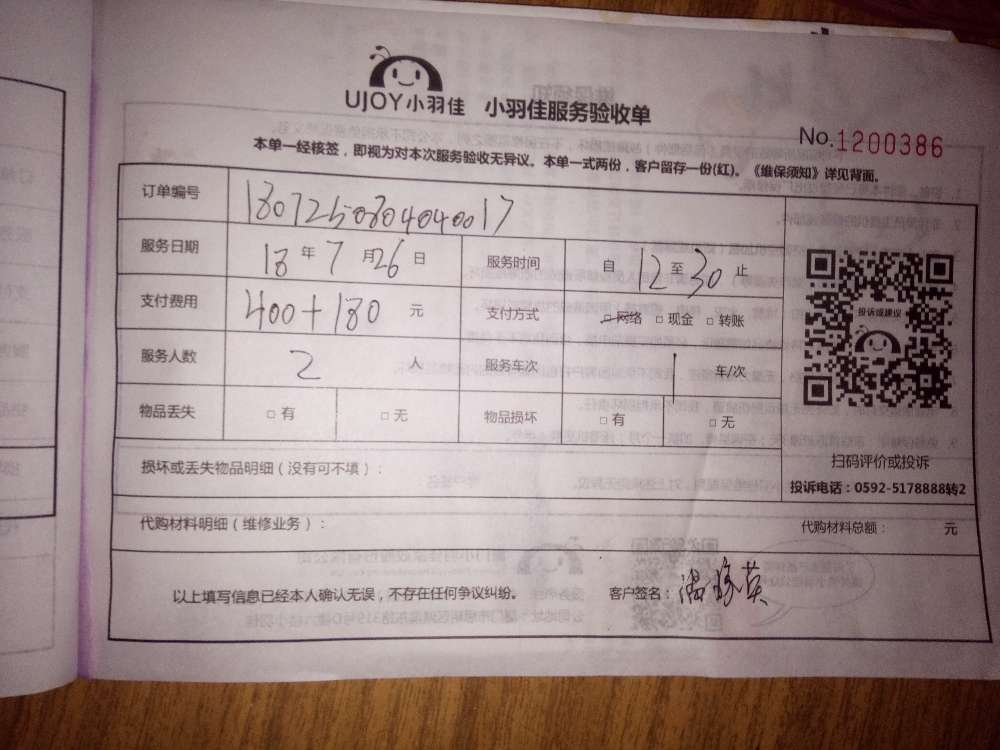 UJOY小羽佳 小羽佳服务验收单
No.1200386
本单一经核签，即视为对本次服务验收无异议。本单一式两份，客户留存一份(红)。《维保须知》详见背面。
订单编号 1807250804040017
服务日期 18 年 7 月 26 日 服务时间 自 12 至 30 止
支付费用 400+180 元 支付方式 □网络 □现金 □转账
投诉或建议
服务人数 2 人 服务车次 1 车/次
物品丢失 □有 □无 物品损坏 □有 □无
损坏或丢失物品明细（没有可不填）：
扫码评价或投诉
投诉电话：0592-5178888转2
代购材料明细（维修业务）： 代购材料总额： 元
以上填写信息已经本人确认无误，不存在任何争议纠纷。 客户签名：